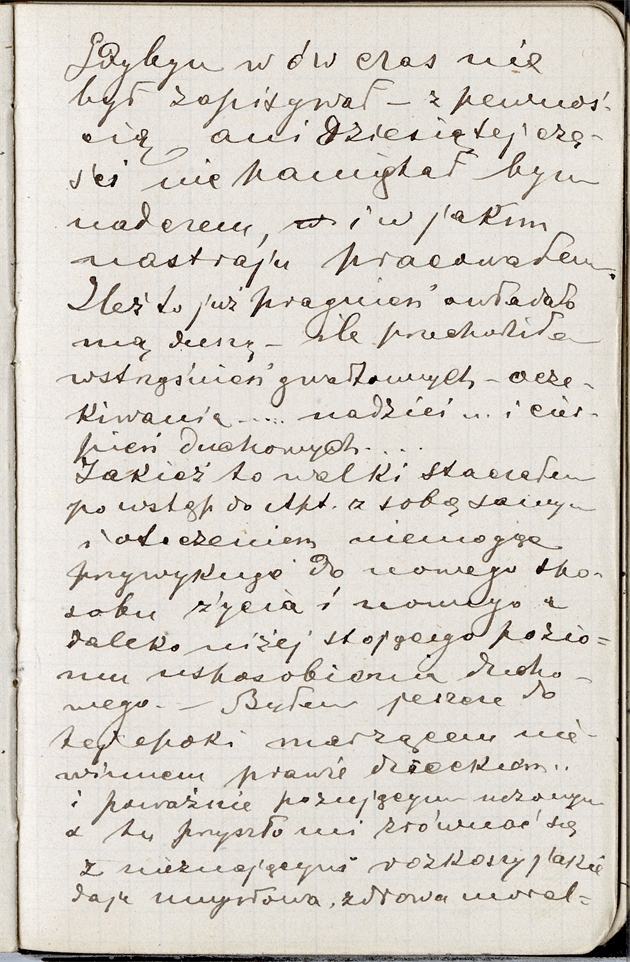 Gdybym w ów czas nie
był zapisywał – z pewnoś-
cią, ani dziesiątej czę-
ści nie pamiętał bym
nad czem, i w jakim
nastroju pracowałem.
Ileż to już pragnień owładało
mą duszą – ile przechodziła
wstrząśnień gwałtownych – ocze-
kiwania .... nadziei ... i cier-
pień duchowych ....
Jakież to walki staczałem
po wstąp. do Apt. z sobą samym
i otoczeniem niemogąc
przywyknąć do nowego spo-
sobu życia i nowego a
daleko niżej stojącego pozio=
mu usposobienia ducho-
wego. – Byłem jeszcze do
tej epoki marzącem nie-
winnem prawie dzieckiem..
i poważnie pozującym uczonym
a tu przyszło mi zrównać się
z nieznającymi rozkoszy jakie
daje umysłowa, zdrowa moral=